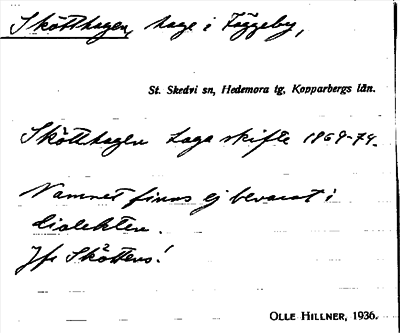 Skötthagen, hage i Täggeby,
St. Skedvi sn, Hedemora tg, Kopparbergs län.
Skötthagen Laga skifte 1869-74.
Namnet finns ej bevarat i
dialekten.
Jfr Sköttens!
OLLE HILLNER, 1936.